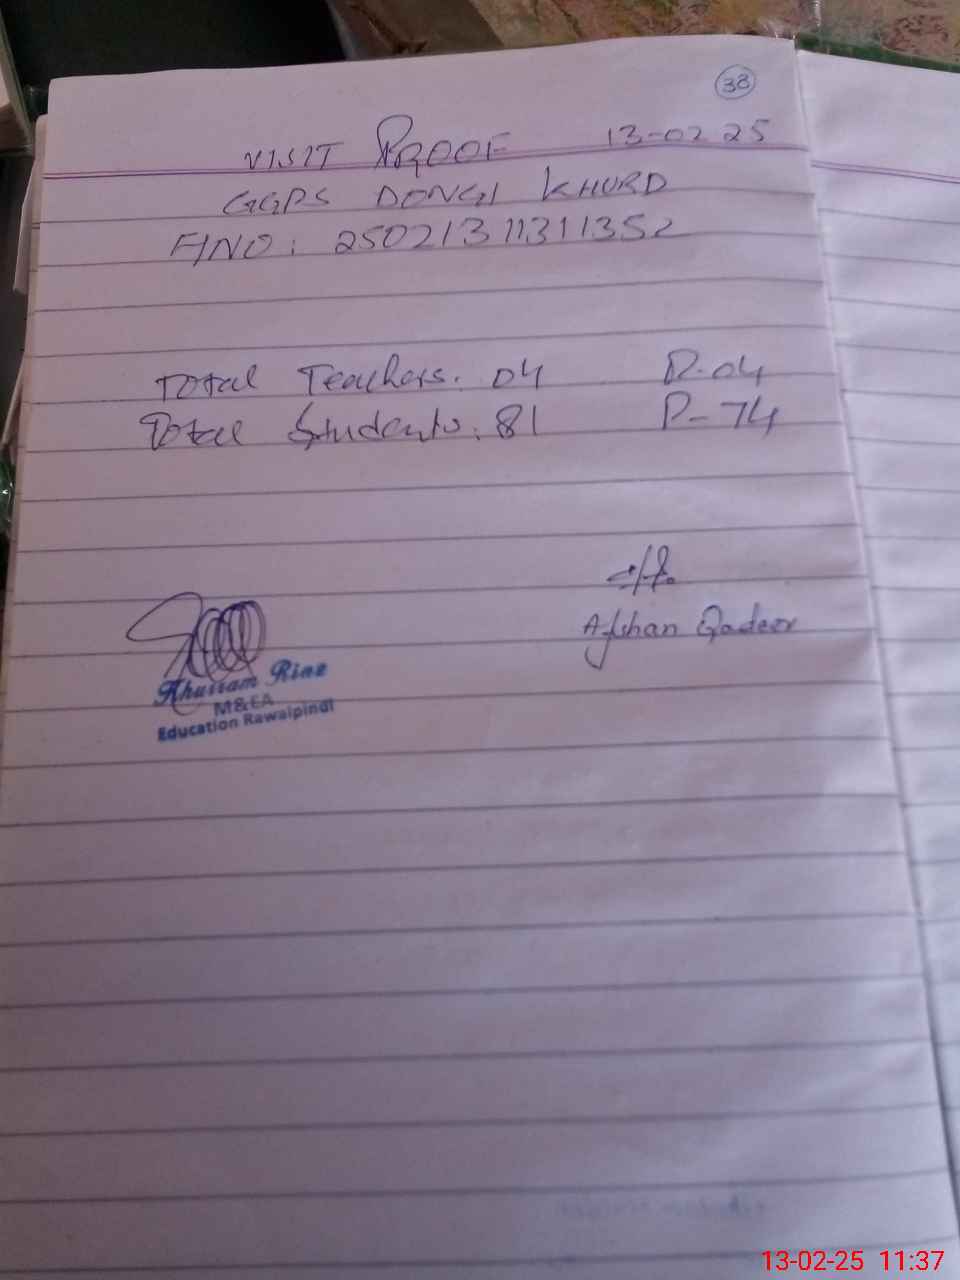 38
VISIT PROOF 13-02-25
GGPS DONGI KHURD
F/NO: 25021311311352
Total Teachers. 04 P-04
Total Students. 81 P-74
Afshan Qadeer
Khurram Riaz
M&EA
Education Rawalpindi
13-02-25 11:37